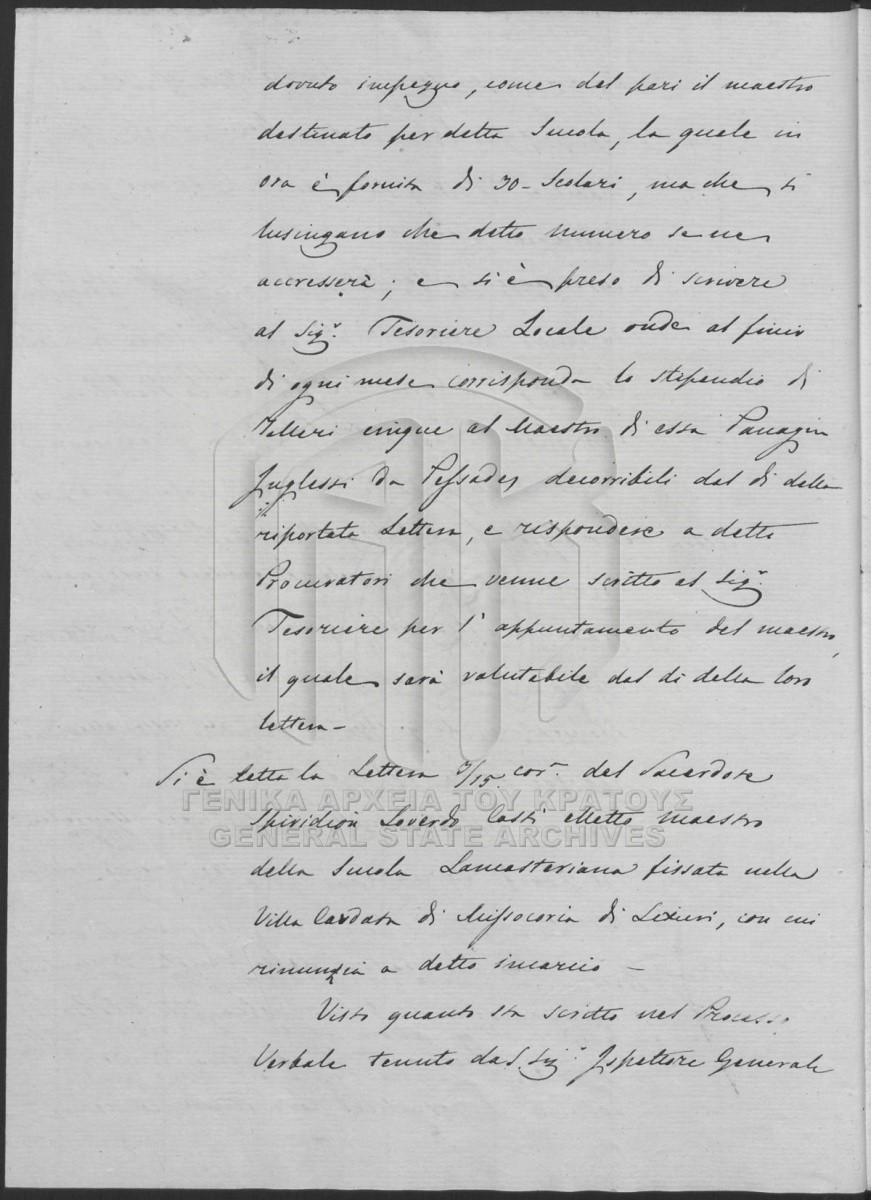 dovuto impegno, come del pari il maestro
destinato per detta Scuola, la quale in
ora è fornita di 30 - Scolari, ma che si
lusingano che detto numero se ne
accresserà; e si è preso di scrivere
al Sigr. Tesoriere Locale onde al finir
di ogni mese corrisponda lo stipendio di
Talleri cinque al Maestro di essa Panagin
Inglessi da Pessades decorribili dal di della
riportata Lettera, e rispondere a detti
Procuratori che venne scritto al Sigr.
Tesoriere per l'appuntamento del maestro,
il quale sarà valutabile dal di della loro
lettera -
Si è letta la Lettera 3/15 corr. del Sacerdote
ΓΕΝΙΚΑ ΑΡΧΕΙΑ ΤΟΥ ΚΡΑΤΟΥΣ
Spiridion Loverdo Casti eletto maestro
GENERAL STATE ARCHIVES
della Scuola Lancasteriana fissata nella
Villa Cardata di Missocoria di Lixuri, con cui
rinunzia a detto incarico -
Visto quanto sta scritto nel Processo
Verbale tenuto dal Sigr. Ispettore Generale